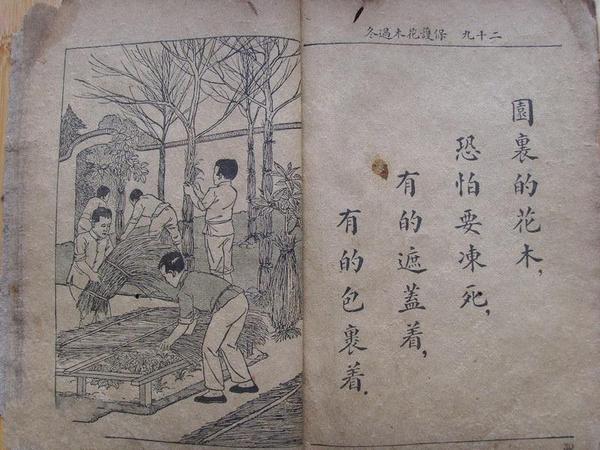 二十九 保護花木過冬
園裏的花木,
恐怕要凍死,
有的遮蓋着,
有的包裹着.
30